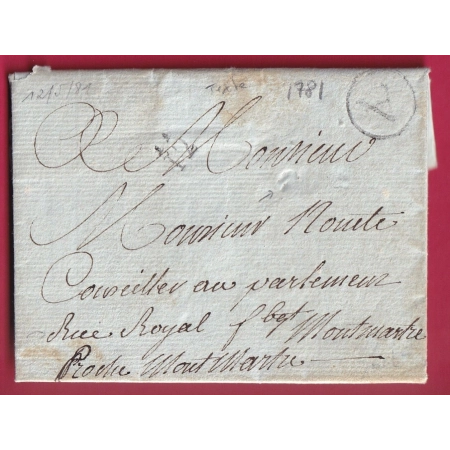 12/5/81 Texte 1781 A
A Monsieur
Monsieur Nouete
Conseiller au parlement
Rue Royal fbgt Montmartre
Proche MontMartre